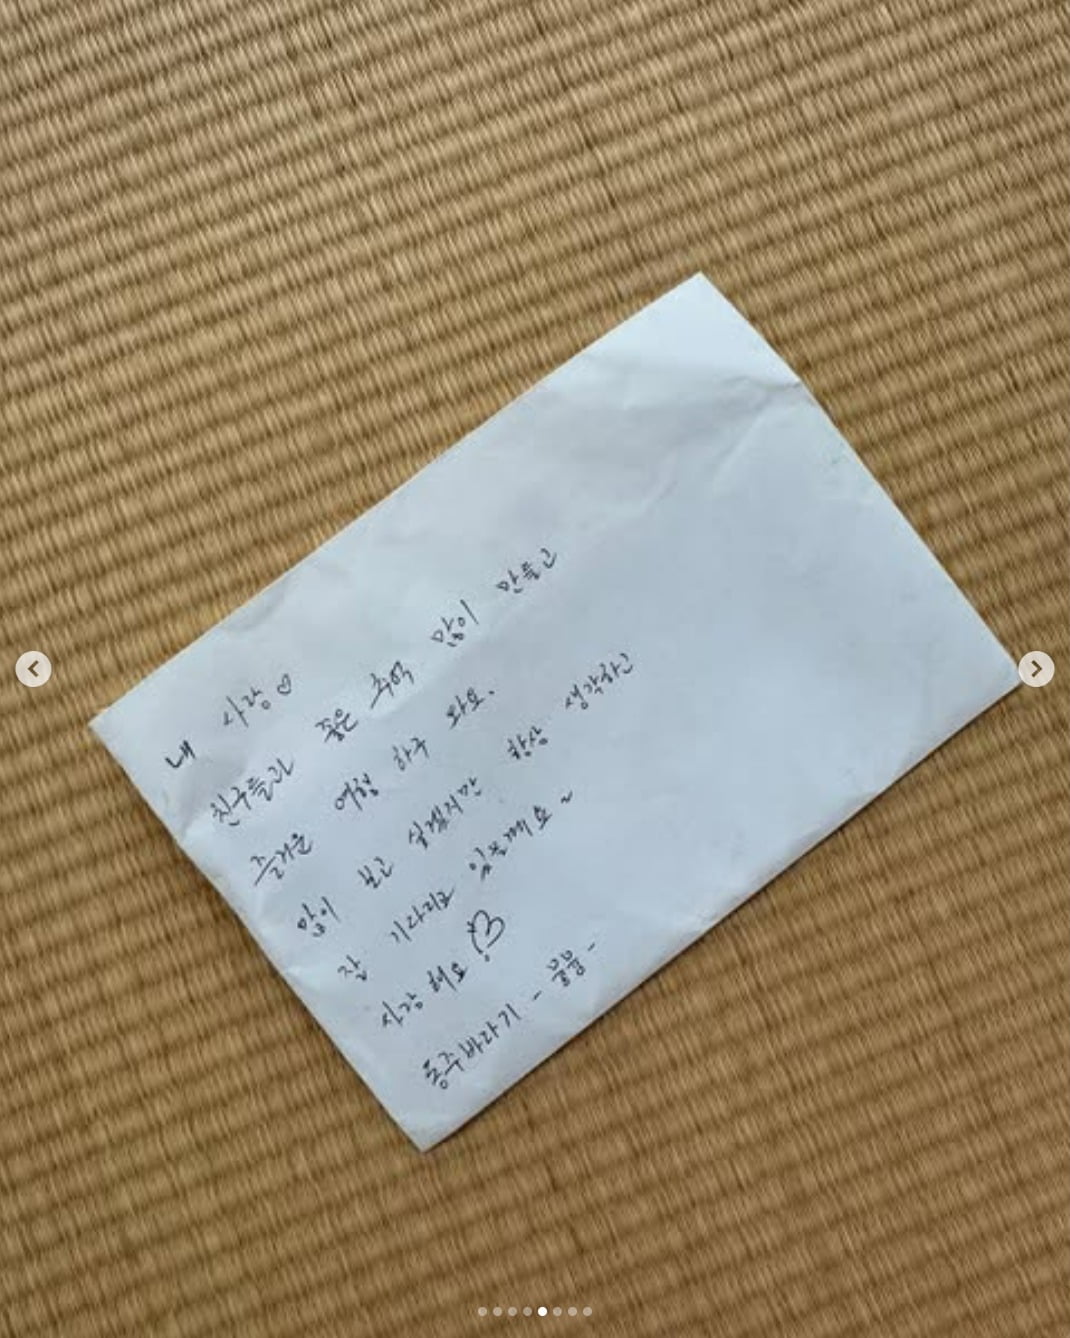 내 사랑♡
친구들과 좋은 추억 많이 만들고
즐거운 여행 하구 와요.
많이 보고 싶겠지만 항상 생각하고
잘 기다리고 있을께요~
사랑해요♡
동주바라기 -뿡뿡-